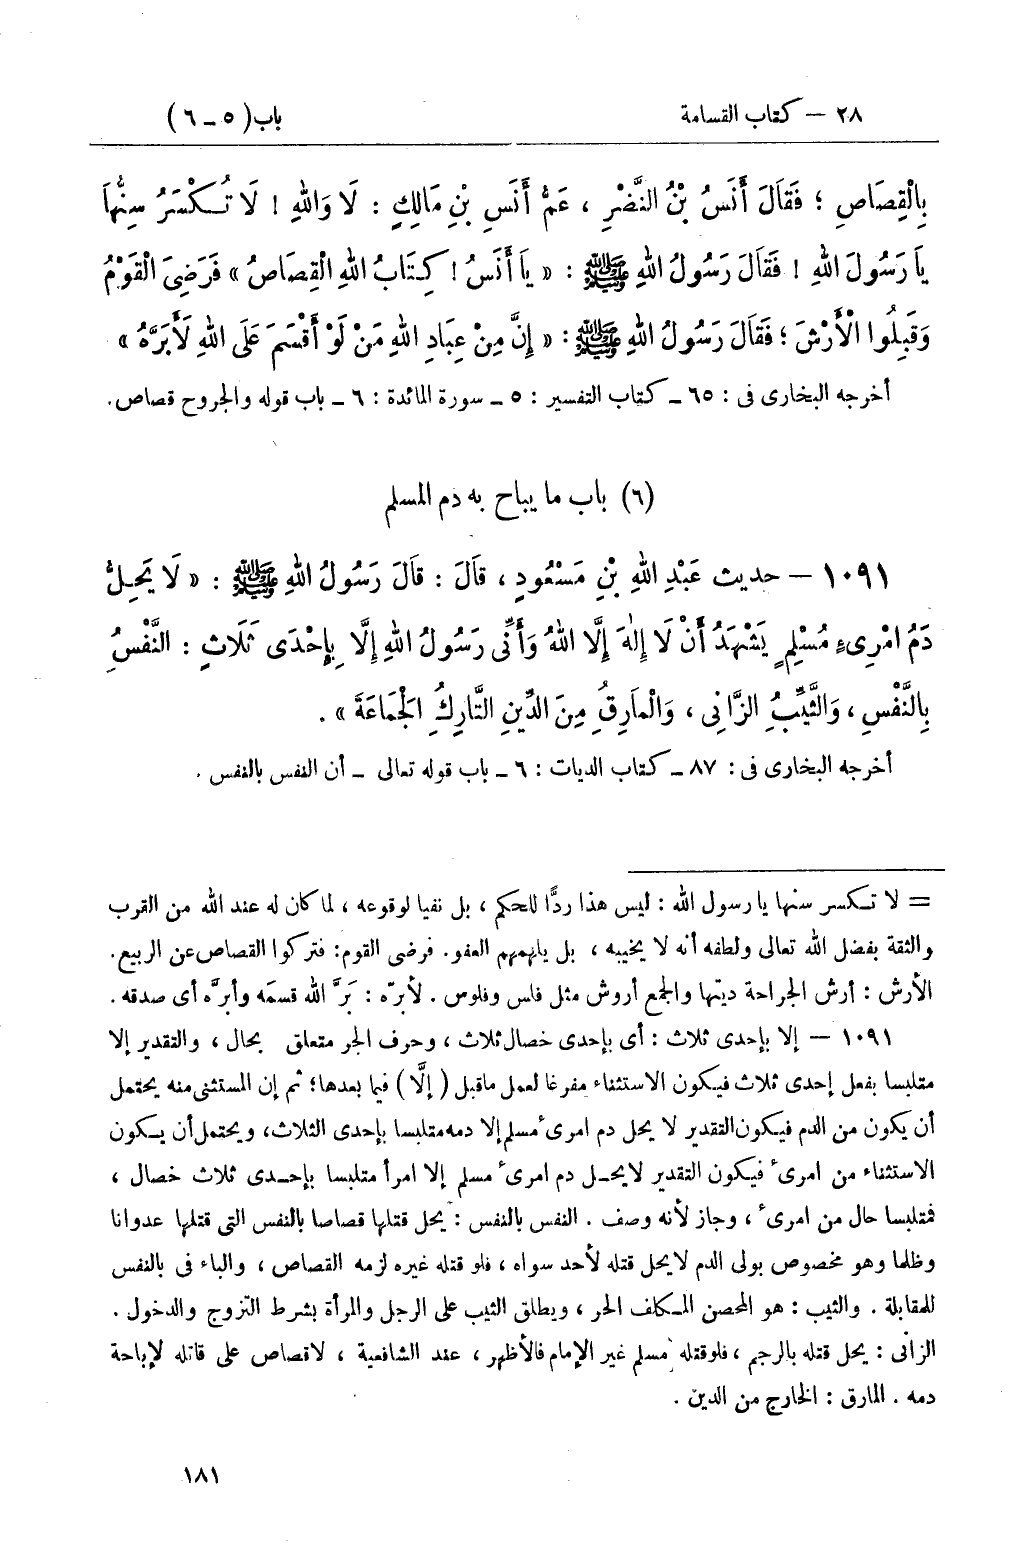 ٢٨ – كتاب القسامة
باب (٥ – ٦)
بِالْقِصَاصِ ؛ فَقَالَ أَنَسُ بْنُ النَّضْرِ ، عَمُّ أَنَسِ بْنِ مَالِكٍ : لَا وَاللهِ ! لَا تُكْسَرُ سِنُّهَا
يَا رَسُولَ اللهِ ! فَقَالَ رَسُولُ اللهِ ﷺ : « يَا أَنَسُ ! كِتَابُ اللهِ الْقِصَاصُ » فَرَضِيَ الْقَوْمُ
وَقَبِلُوا الْأَرْشَ ؛ فَقَالَ رَسُولُ اللهِ ﷺ : « إِنَّ مِنْ عِبَادِ اللهِ مَنْ لَوْ أَقْسَمَ عَلَى اللهِ لَأَبَرَّهُ »
أخرجه البخارى فى : ٦٥ – كتاب التفسير : ٥ – سورة المائدة : ٦ – باب قوله والجروح قصاص .
(٦) باب ما يباح به دم المسلم
١٠٩١ – حديث عَبْدِ اللهِ بْنِ مَسْعُودٍ ، قَالَ : قَالَ رَسُولُ اللهِ ﷺ : « لَا يَحِلُّ
دَمُ امْرِىءٍ مُسْلِمٍ يَشْهَدُ أَنْ لَا إِلٰهَ إِلَّا اللهُ وَأَنِّى رَسُولُ اللهِ إِلَّا بِإِحْدَى ثَلَاثٍ : النَّفْسُ
بِالنَّفْسِ ، وَالثَّيِّبُ الزَّانِى ، وَالْمَارِقُ مِنَ الدِّينِ التَّارِكُ الْجَمَاعَةَ » .
أخرجه البخارى فى : ٨٧ – كتاب الديات : ٦ – باب قوله تعالى – أن النفس بالنفس .
= لا تكسر سنها يا رسول الله : ليس هذا ردًّا للحكم ، بل نفيا لوقوعه ، لما كان له عند الله من القرب
والثقة بفضل الله تعالى ولطفه أنه لا يخيبه ، بل يلهمهم العفو . فرضى القوم : فتركوا القصاص عن الربيع .
الأرش : أرش الجراحة ديتها والجمع أروش مثل فلس وفلوس . لأبرّه : بَرَّ الله قسمَه وأبرَّه أى صدقه .
١٠٩١ – إلا بإحدى ثلاث : أى بإحدى خصال ثلاث ، وحرف الجر متعلق بحال ، والتقدير إلا
متلبسا بفعل إحدى ثلاث فيكون الاستثناء مفرغا لعمل ماقبل ( إلَّا ) فيما بعدها ؛ ثم إن المستثنى منه يحتمل
أن يكون من الدم فيكون التقدير لا يحل دم امرىء مسلم إلا دمه متلبسا بإحدى الثلاث ، ويحتمل أن يكون
الاستثناء من امرىء فيكون التقدير لايحل دم امرىء مسلم إلا امرأ متلبسا بإحدى ثلاث خصال ،
فمتلبسا حال من امرىء ، وجاز لأنه وصف . النفس بالنفس : يحل قتلها قصاصا بالنفس التى قتلها عدوانا
وظلما وهو مخصوص بولى الدم لايحل قتله لأحد سواه ، فلو قتله غيره لزمه القصاص ، والباء فى بالنفس
للمقابلة . والثيب : هو المحصن المكلف الحر ، ويطلق الثيب على الرجل والمرأة بشرط التزوج والدخول .
الزانى : يحل قتله بالرجم ، فلو قتله مسلم غير الإمام فالأظهر ، عند الشافعية ، لاقصاص على قاتله لإباحة
دمه . المارق : الخارج من الدين .
١٨١